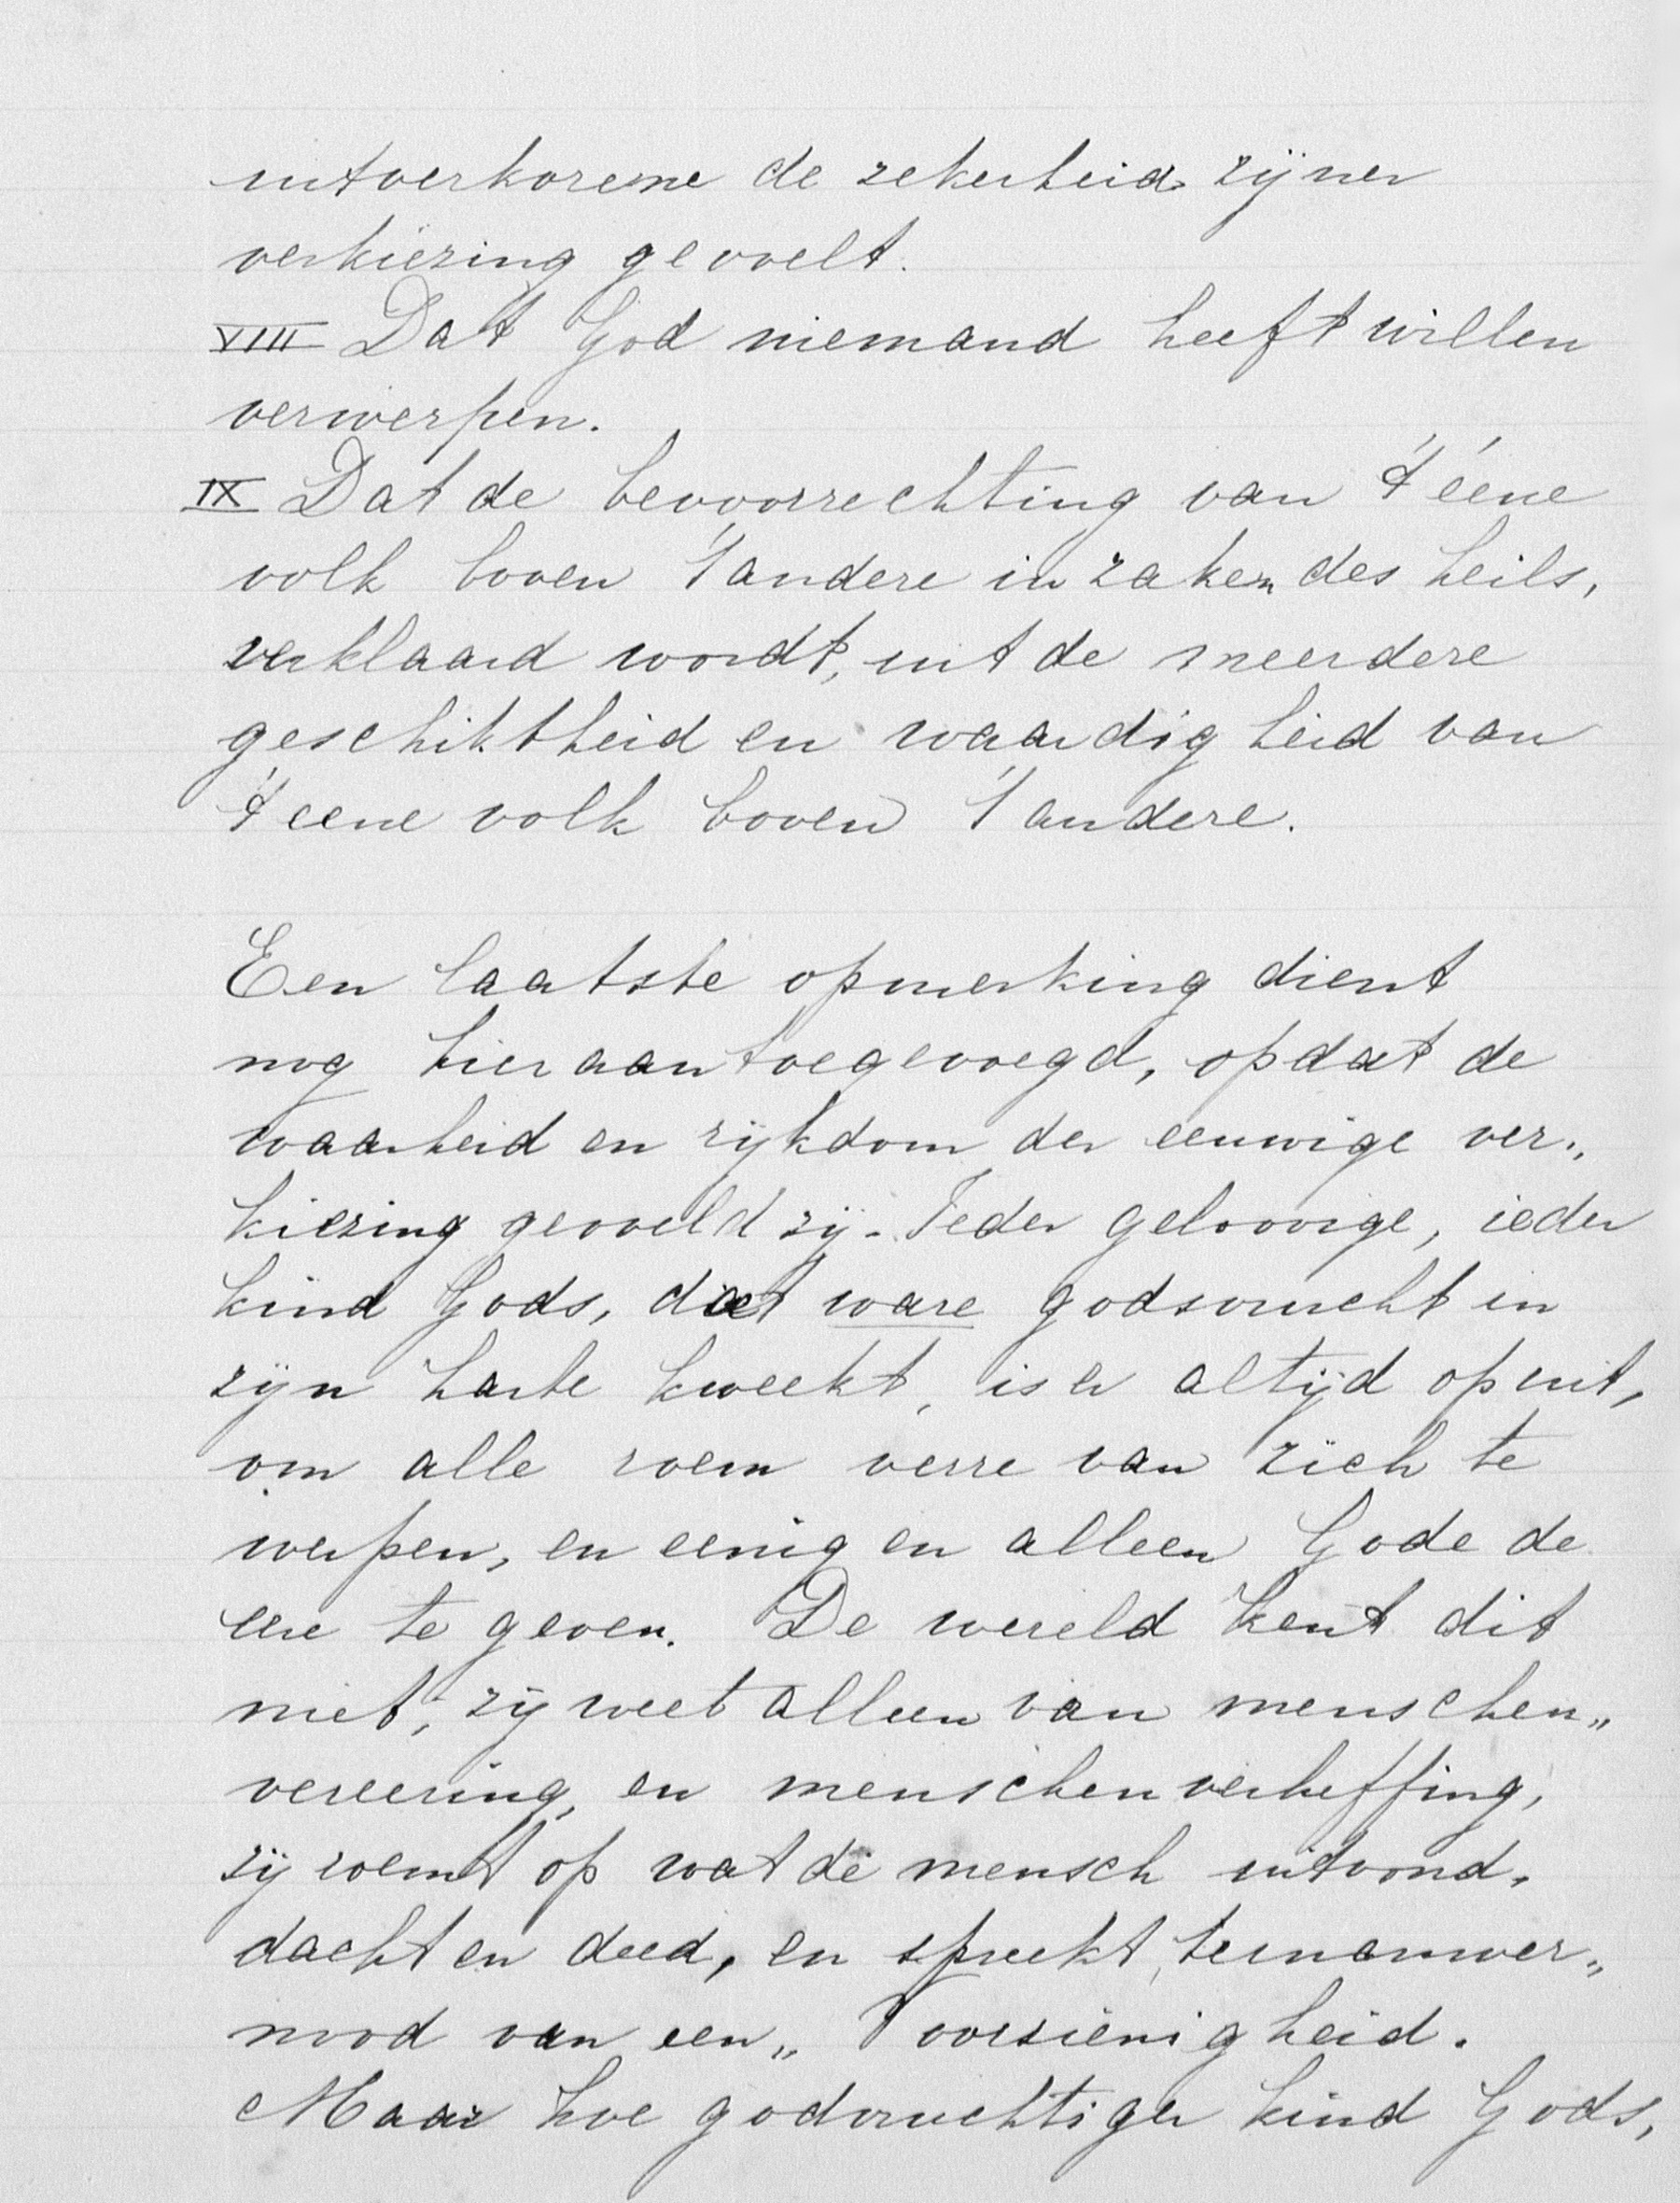 uitverkorene de zekerheid zijner
verkiezing gevoelt.
VIII Dat God niemand heeft willen
verwerpen.
IX Dat de bevoorrechting van 't ééne
volk boven 't andere in zaken des heils,
verklaard wordt, uit de meerdere
geschiktheid en waardigheid van
't eene volk boven 't andere.
Een laatste opmerking dient
nog hieraan toegevoegd, opdat de
waarheid en rijkdom der eeuwige ver„
kiezing gevoeld zij. Ieder geloovige, ieder
kind Gods, dat ware godsvrucht in
zijn harte kweekt, is er altijd op uit,
om alle roem verre van zich te
werpen, en eenig en alleen Gode de
eere te geven. De wereld kent dit
niet, zij weet alleen van menschen„
vereering, en menschenverheffing,
zij roemt op wat de mensch uitvond,
dacht en deed, en spreekt, ternauwer„
nood van een „Voorzienigheid.
Maar hoe godvruchtiger kind Gods,